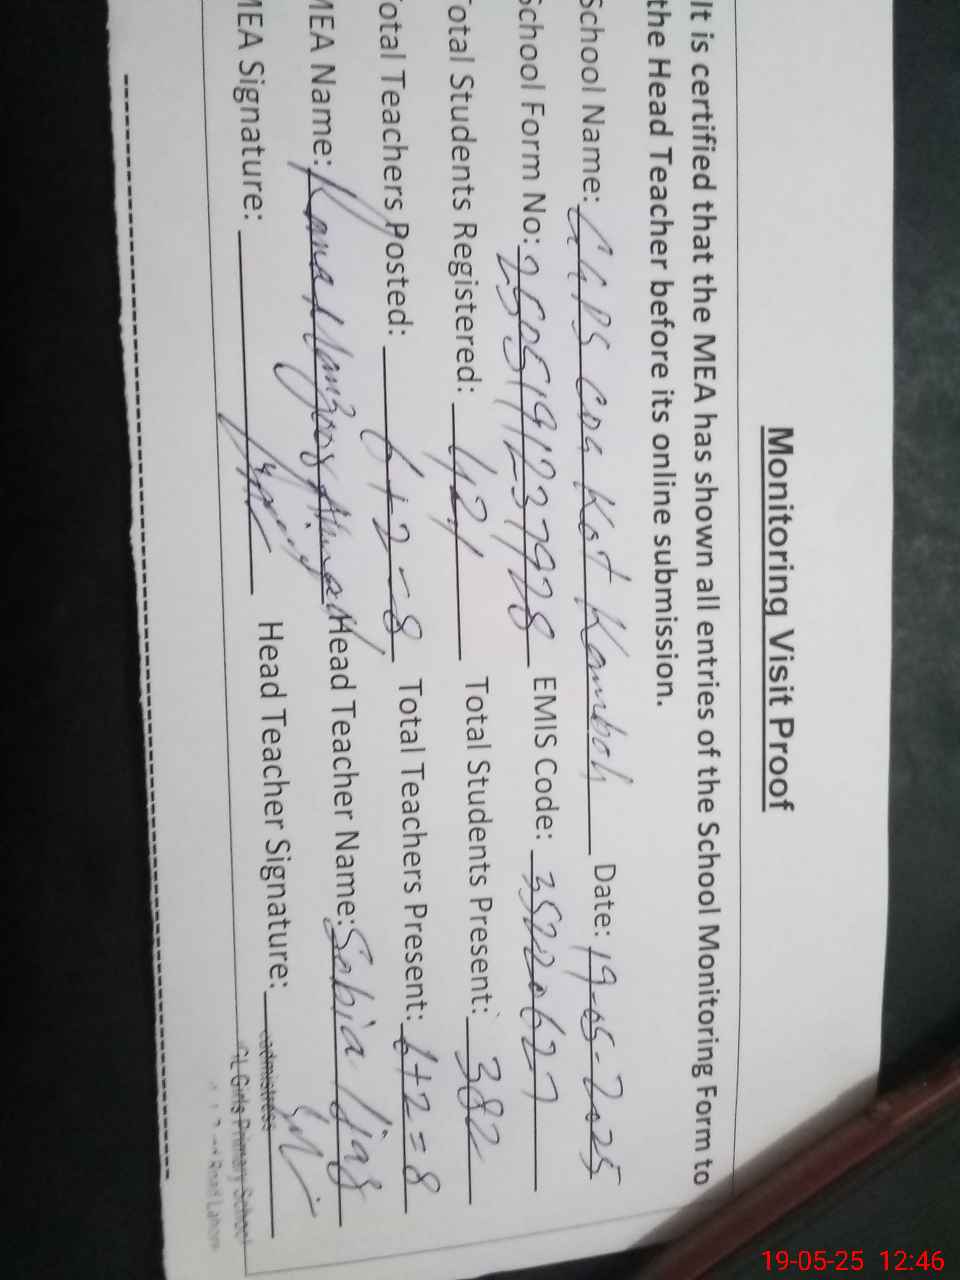 Monitoring Visit Proof
It is certified that the MEA has shown all entries of the School Monitoring Form to
the Head Teacher before its online submission.
School Name: GGPS Kot Kamboh Date: 19-05-2025
School Form No: 2505191237928 EMIS Code: 35220627
Total Students Registered: 421 Total Students Present: 382
Total Teachers Posted: 6+2=8 Total Teachers Present: 6+2=8
MEA Name: Rana Head Teacher Name: Sobia Ijaz
MEA Signature: Head Teacher Signature:
Girls Primary School
Road Lahore
19-05-25 12:46